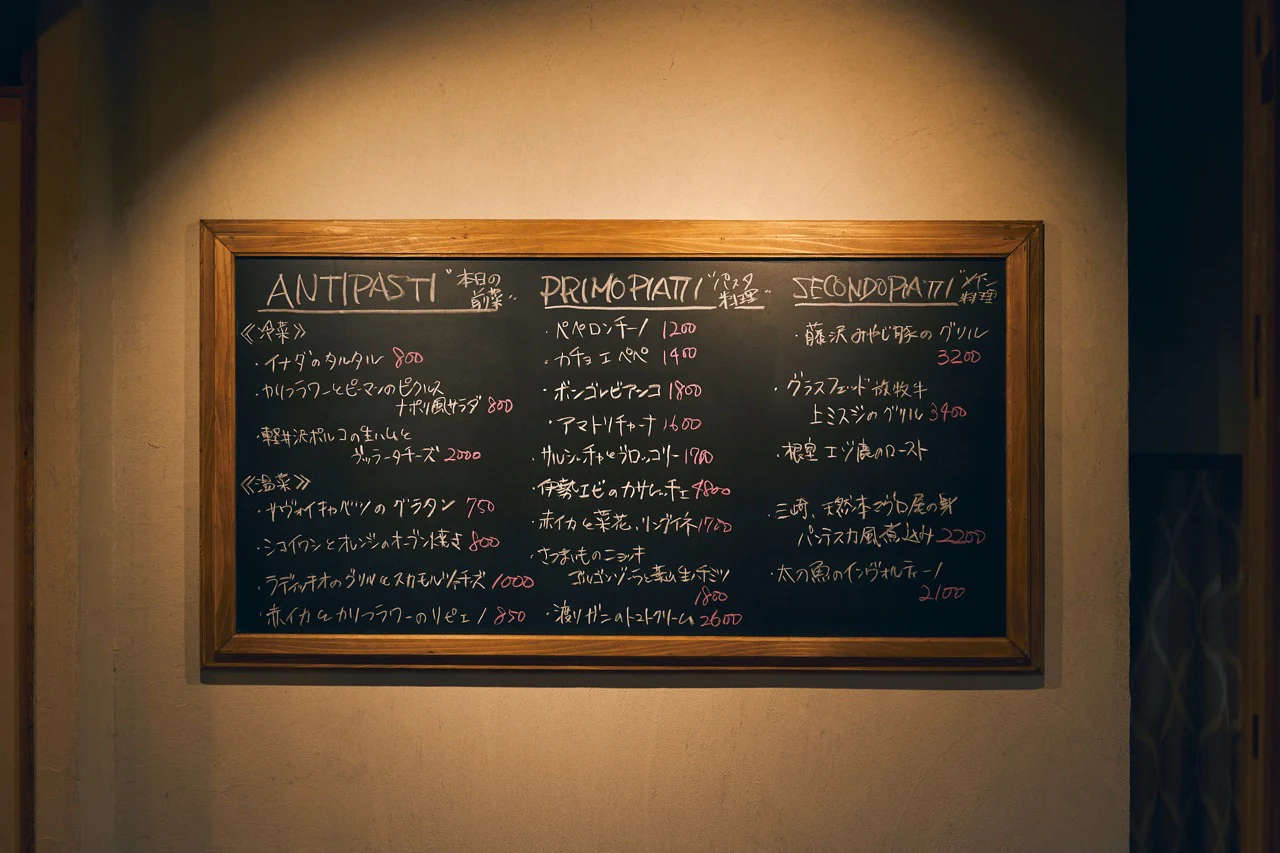 ANTIPASTI "本日の前菜"
《冷菜》
・イナダのタルタル 800
・カリフラワーとピーマンのピクルス
ナポリ風サラダ 800
・軽井沢ポルコの生ハムと
ブッラータチーズ 2000
《温菜》
・サヴォイキャベツのグラタン 750
・シコイワシとオレンジのオーブン焼き 800
・ラディッキオのグリルとスカモルツァチーズ 1000
・赤イカとカリフラワーのリピエノ 850
PRIMOPIATTI "パスタ料理"
・ペペロンチーノ 1200
・カチョエペペ 1400
・ボンゴレビアンコ 1800
・アマトリチャーナ 1600
・サルシッチャとブロッコリー 1700
・伊勢エビのカサレッチェ 4800
・赤イカと菜花、リングイネ 1700
・さつまいものニョッキ
ゴルゴンゾーラと
1800
・渡りガニのトマトクリーム 2600
SECONDOPIATTI "メイン料理"
・藤沢みやじ豚のグリル
3200
・グラスフェッド放牧牛
上ミスジのグリル 3400
・根室エゾ鹿のロースト
・三崎、天然本マグロ尾の身
パンテスカ風煮込み 2200
・太刀魚のインヴォルティーノ
2100